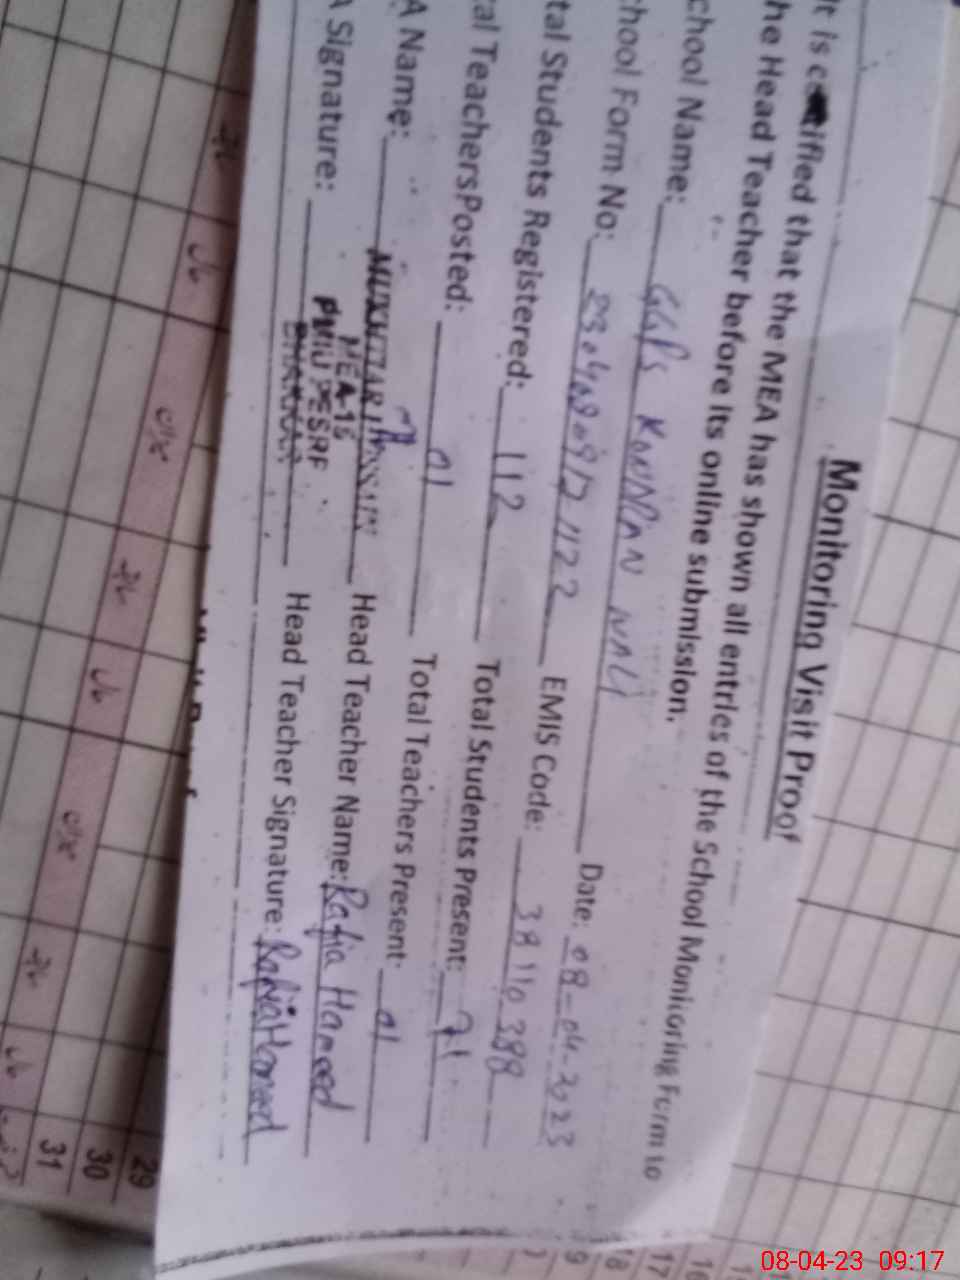 Monitoring Visit Proof
It is certified that the MEA has shown all entries of the School Monitoring Form to
he Head Teacher before its online submission.
chool Name: GGPS KONNAN WALI Date: 08-04-2023
chool Form No: 23040809121122 EMIS Code: 38110388
tal Students Registered: 112 Total Students Present: 71
tal Teachers Posted: 01 Total Teachers Present: 01
A Name: MUKHTAR HUSSAIN Head Teacher Name: Rafia Hameed
MEA-15
A Signature: PMIU PESRP Head Teacher Signature: Rafia Hameed
BHAKKAR
29
30
31
16
17
18
19
08-04-23 09:17